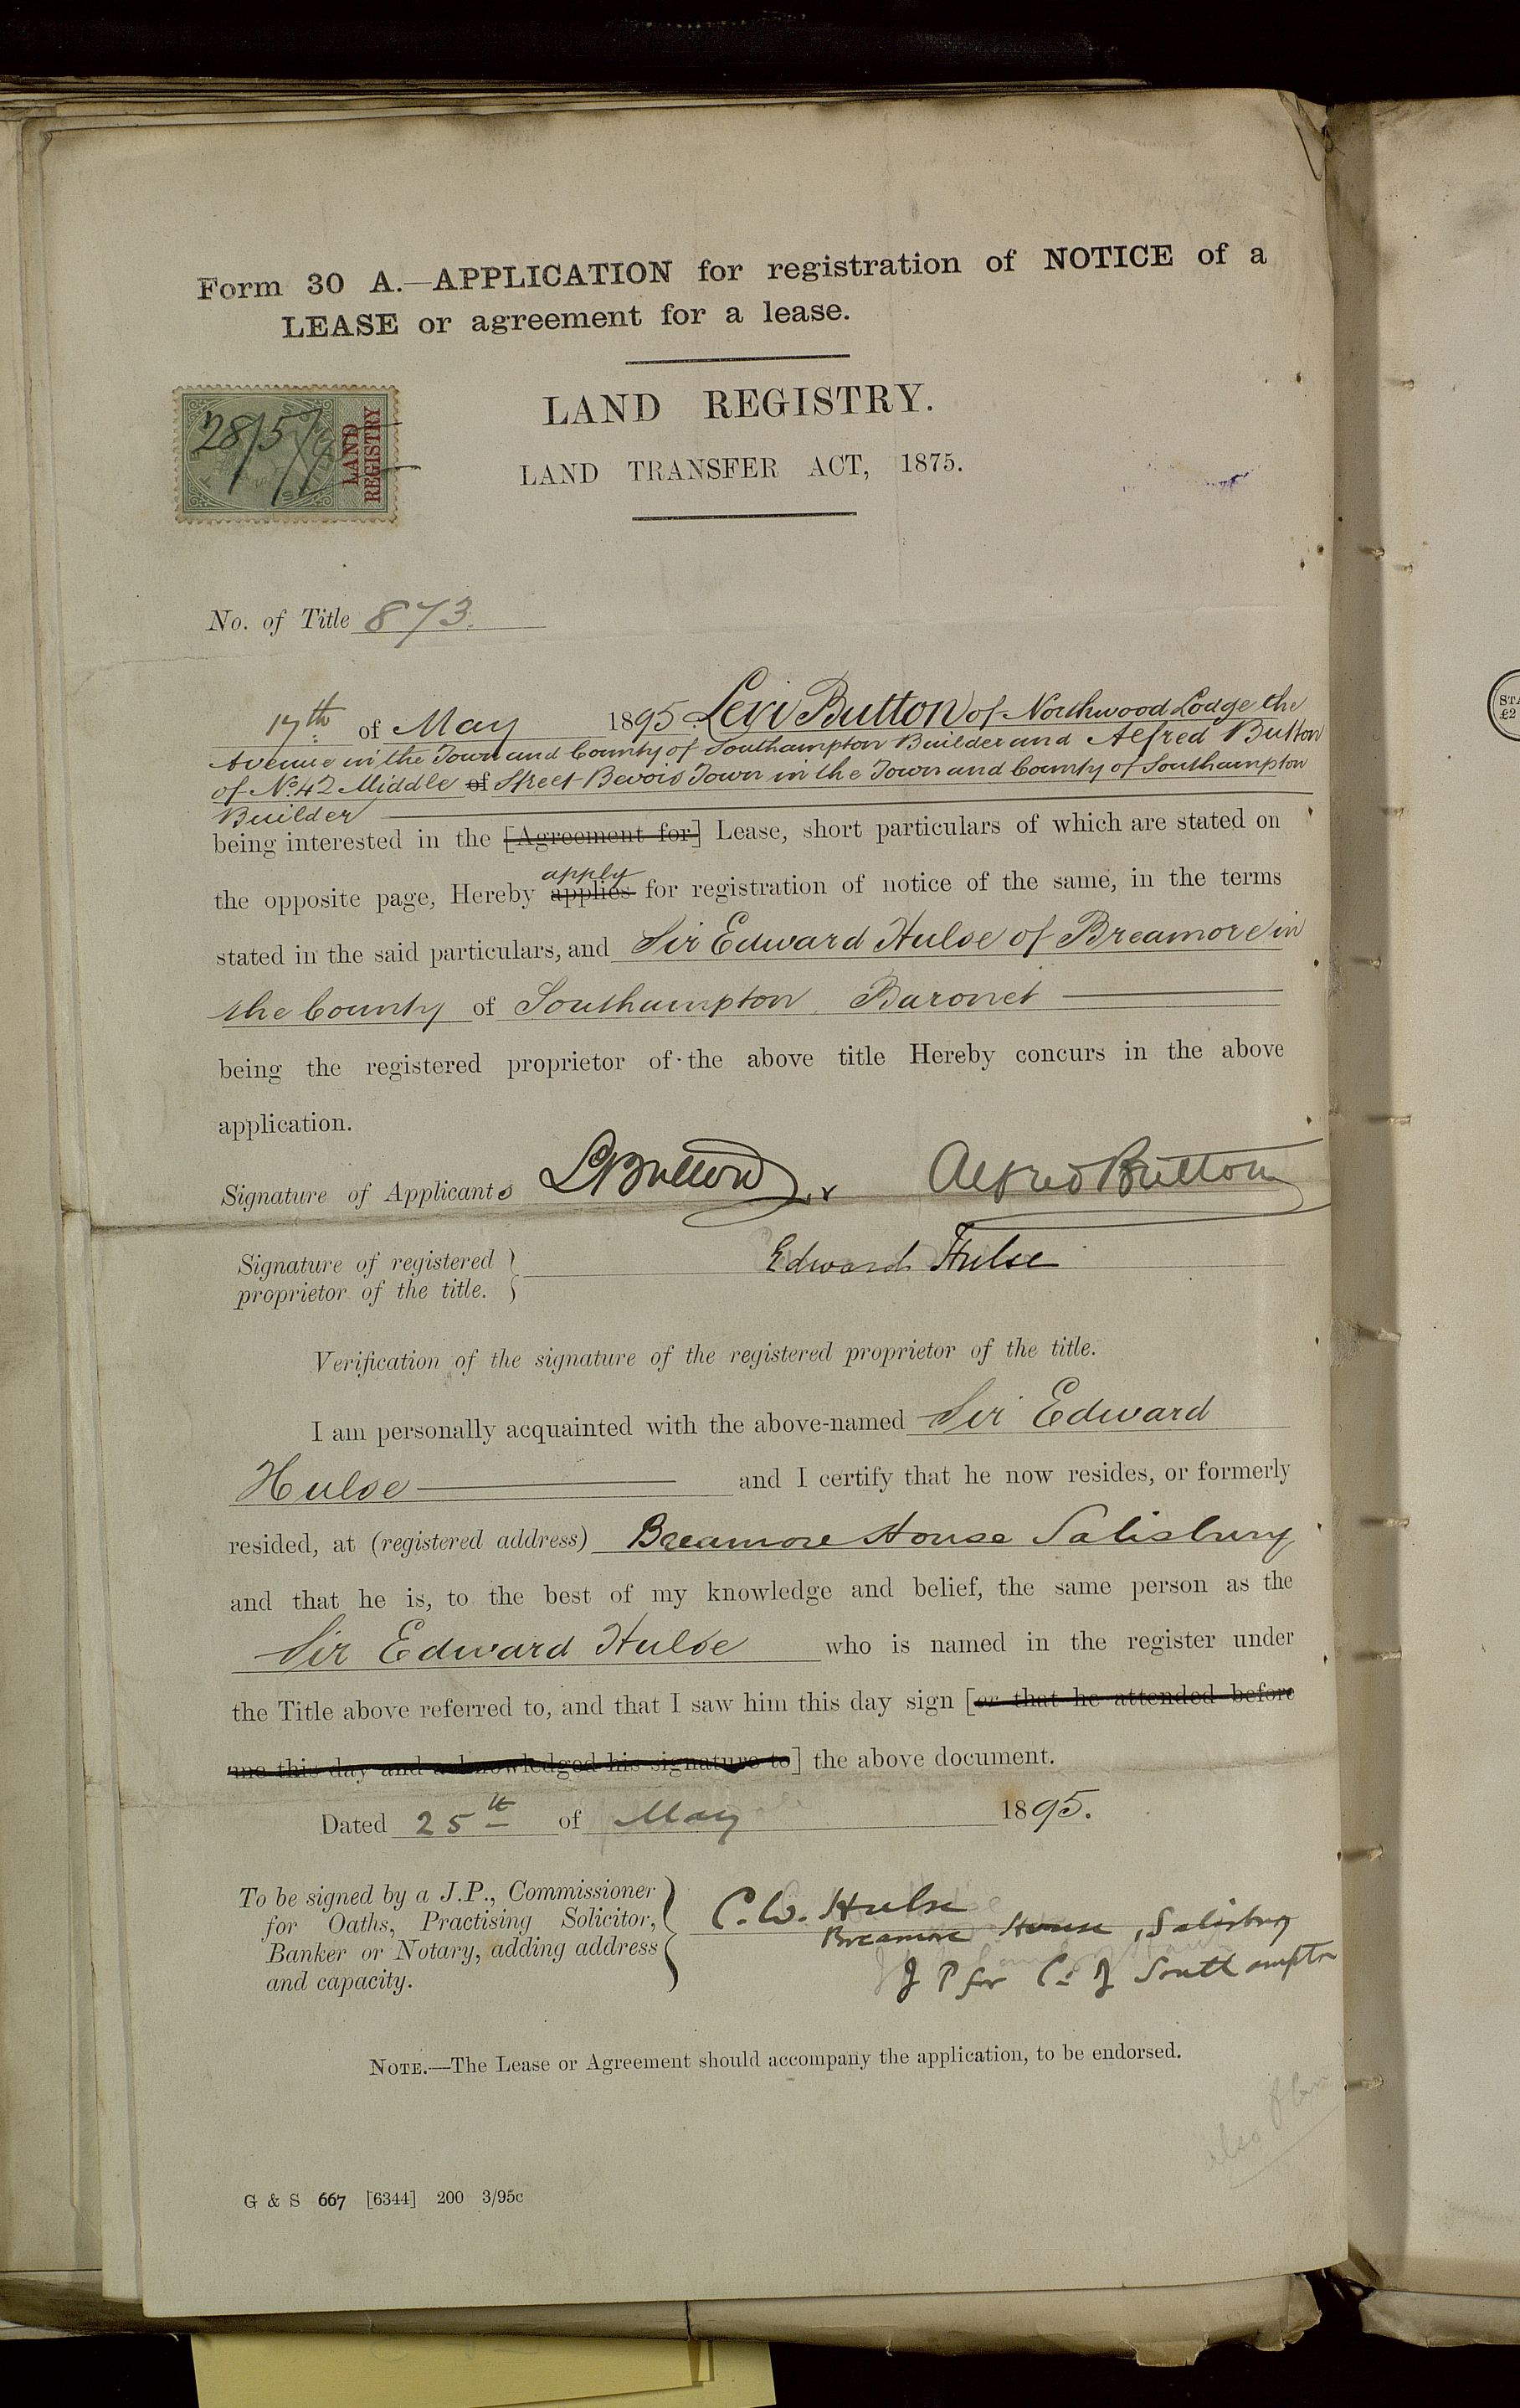 Form 30 A.—APPLICATION for registration of NOTICE of a
LEASE or agreement for a lease.
LAND REGISTRY.
LAND TRANSFER ACT, 1875.
28/5/
LAND
REGISTRY
No. of Title 873.
17th of May 1895 Levi Button of Northwood Lodge the
Avenue in the Town and County of Southampton Builder and Alfred Button
of No. 42 Middle of Street Bevois Town in the Town and County of Southampton
Builder
being interested in the [Agreement for] Lease, short particulars of which are stated on
apply
the opposite page, Hereby applies for registration of notice of the same, in the terms
stated in the said particulars, and Sir Edward Hulse of Breamore in
the County of Southampton, Baronet
being the registered proprietor of the above title Hereby concurs in the above
application.
Signature of Applicants LButton Alfred Button
Signature of registered
proprietor of the title. Edward Hulse
Verification of the signature of the registered proprietor of the title.
I am personally acquainted with the above-named Sir Edward
Hulse and I certify that he now resides, or formerly
resided, at (registered address) Breamore House Salisbury
and that he is, to the best of my knowledge and belief, the same person as the
Sir Edward Hulse who is named in the register under
the Title above referred to, and that I saw him this day sign [or that he attended before
me this day and acknowledged his signature to] the above document.
Dated 25th of May 1895.
To be signed by a J.P., Commissioner
for Oaths, Practising Solicitor,
Banker or Notary, adding address
and capacity.
C. W. Hulse
Breamore House, Salisbury
J P for Co. of Southampton
NOTE.—The Lease or Agreement should accompany the application, to be endorsed.
also plan
G & S 667 [6344] 200 3/95c
STA
£2